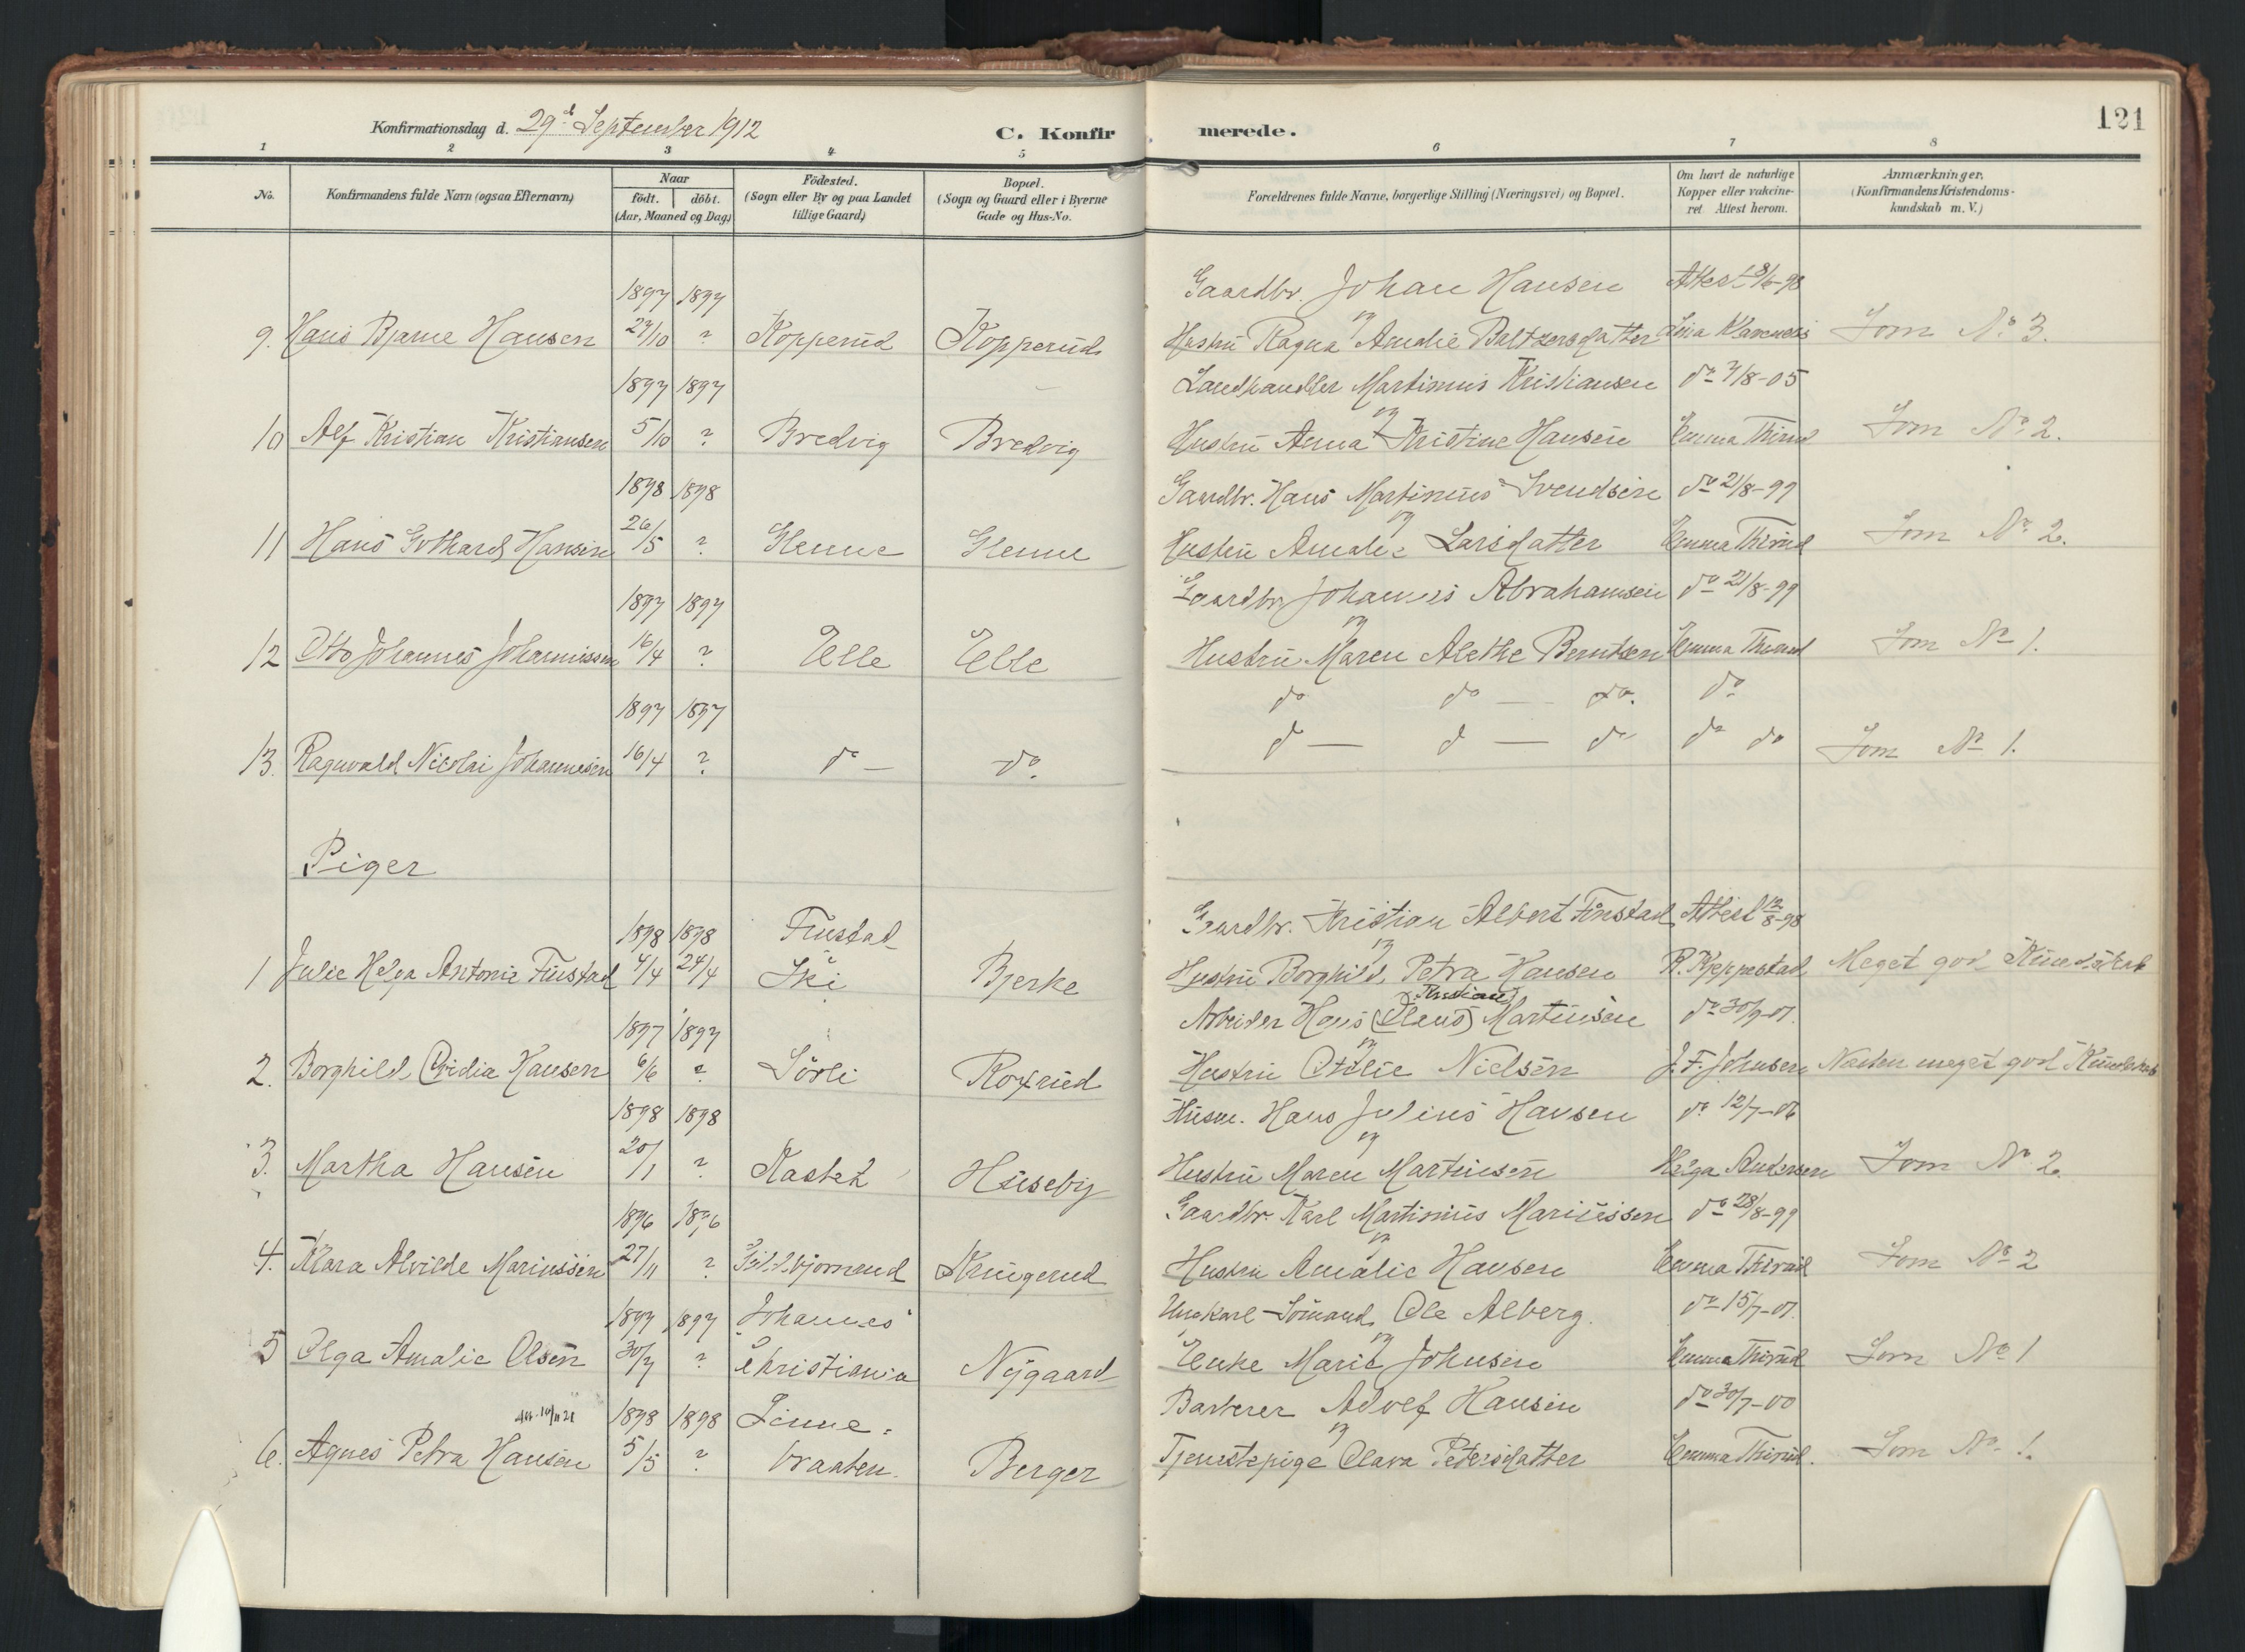 Konfirmationsdag d. 29d September 1912
C. Konfirmerede.
121
1 2 3 4 5 6 7 8
No.
Konfirmandens fulde Navn (ogsaa Efternavn)
Naar
födt. döbt.
(Aar, Maaned og Dag)
Födested.
(Sogn eller By og paa Landet
tillige Gaard)
Bopæl.
(Sogn og Gaard eller i Byerne
Gade og Hus-No.
Forældrenes fulde Navne, borgerlige Stilling (Næringsvei) og Bopæl.
Om havt de naturlige
Kopper eller vakcine-
ret Attest herom.
Anmærkninger,
(Konfirmandens Kristendoms-
kundskab m. V.)
1897 1897 Gaardbr. Johan Hansen Attest 8/6-98
9. Hans Bjarne Hansen 27/10 ? Kopperud Kopperud Hustru Ragna Amalie Baltzersdatter Som No 3.
1897 1897 Landhandler Martinius Kristiansen do 7/8-05
10 Alf Kristian Kristiansen 5/10 ? Bredvig Bredvig og Hustru Anna Kristine Hansen Emma Thirud Som No 2.
1898 1898 Gaardbr. Hans Martinius Svendsen do 21/8-99
11 Hans Gothard Hansen 26/5 ? Glenne Glenne og Hustru Amalie Larsdatter Emma Thirud Som No 2.
1897 1897 Gaardbr Johannes Abrahamsen do 21/8-99
12 Otto Johannes Johannissen 16/4 ? Elle Elle og Hustru Maren Alethe Berntsen Emma Thirud Som No 1.
1897 1897 do do — do. do
13. Ragnvald Nicolai Johannesen 16/4 ? do — do. do — do — do do do Som No 1.
Piger
1898 1898 Finstad Gaardbr. Kristian Albert Finstad Attest 12/8-98
1 Julie Helga Antonie Finstad 4/4 24/4 Ski Bjerke og Hustru Borghild Petra Hansen R. Kjeppestad Meget god Kundskab
1897 1897 Arbeider Hans (Olaus) Kristian Martinsen do 30/9-01.
2. Borghild Ovidia Hansen 6/6 ? Sörli Roxrud og Hustru Otilie Nielsen J. F. Johnsen Næsten meget god Kundskab
1898 1898 Husm. Hans Julius Hansen do 12/7-06
3. Martha Hansen 20/1 ? Kastet Huseby og Hustru Maren Martinsen Helga Andersen Som No 2.
1896 1896 Gaardbr. Karl Martinius Mariussen do 28/8-99
4. Klara Alvilde Mariussen 27/11 ? Kringerud og Hustru Amalie Hansen Emma Thirud Som No 2
1897 1897 Johannes Ungkarl Sömand Ole Alberg. do 15/7-01.
5 Olga Amalie Olsen 30/7 ? Christiania Nygaard og Enke Marie Johnsen Emma Thirud Som No 1
1898 1898 Linne- Barberer Adolf Hansen do 30/7-00
6. Agnes Petra Hansen 5/5 ? braaten. Berger og Tjenestepige Olava Petersdatter Emma Thirud. Som No 1.